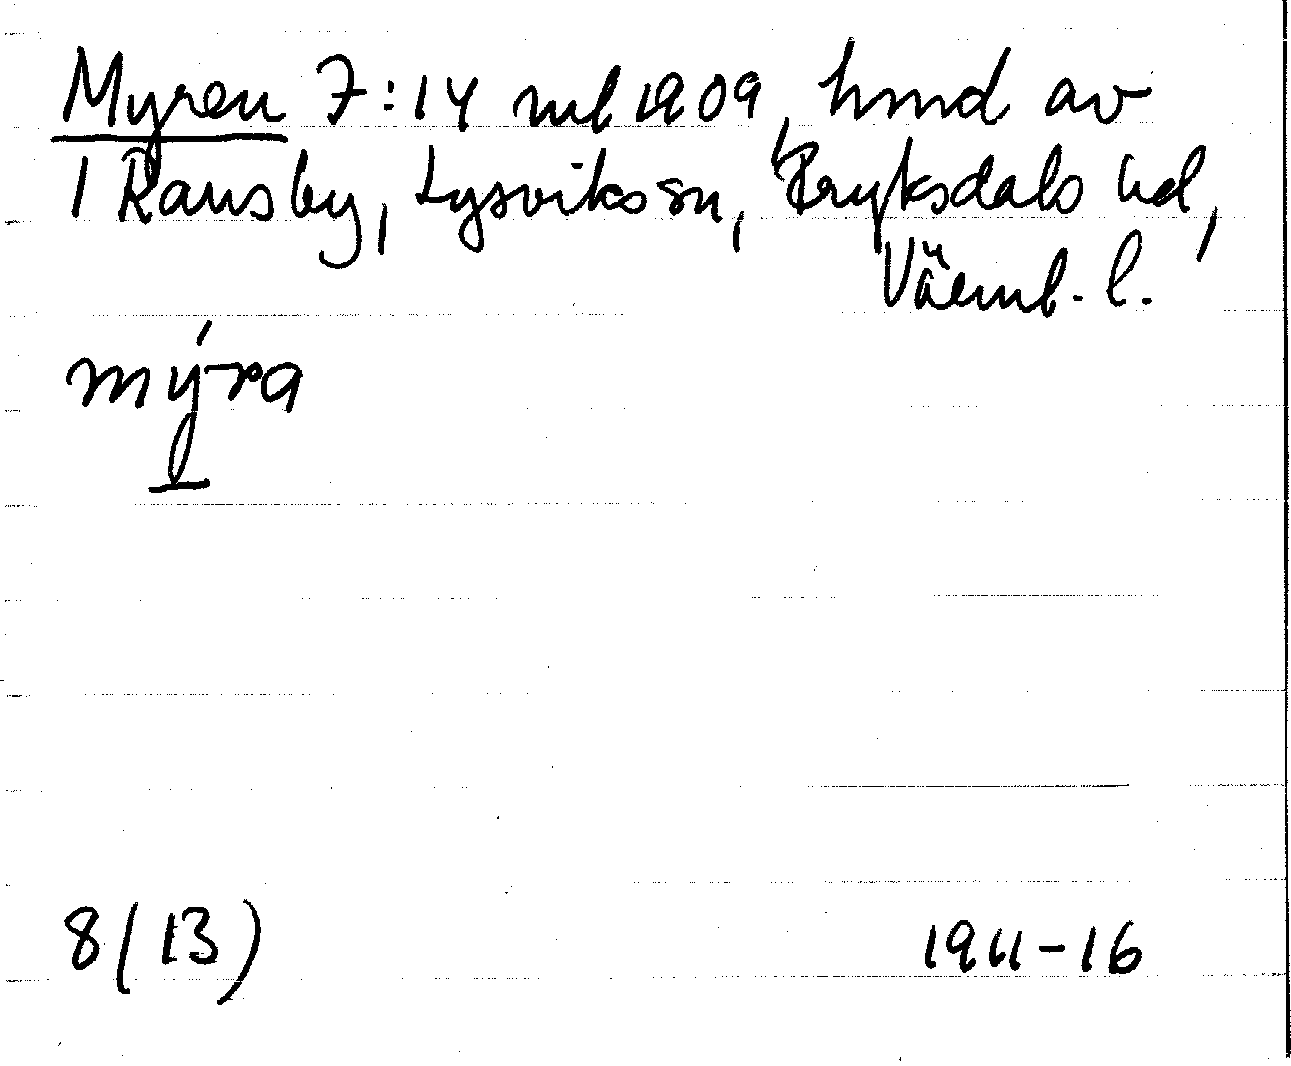 Myren 7:14 ml 1909, hmd av
1 Ransby, Lysviks sn, Fryksdals hd,
Värml. l.
mý-ra
8(13)
1911-16